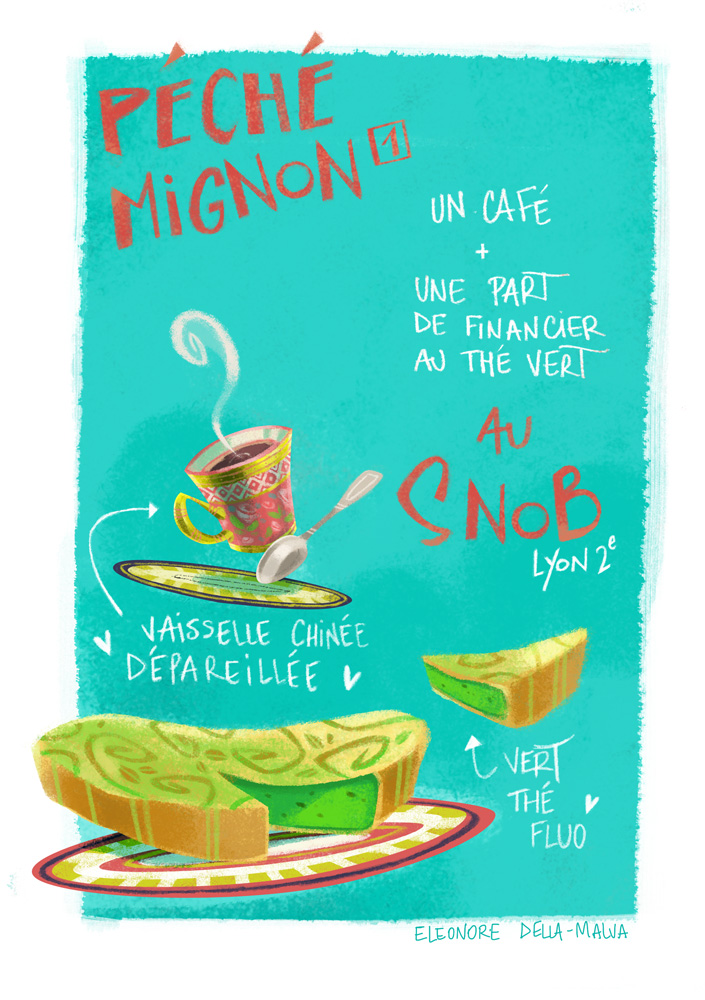 PÉCHÉ
MiGNON 1
UN CAFÉ
+
UNE PART
DE FiNANCiER
AU THÉ VERT
AU
SNOB
LYON 2e
VAiSSELLE CHiNÉE
DÉPAREiLLÉE
VERT
THÉ
FLUO
ELEONORE DELLA-MALVA